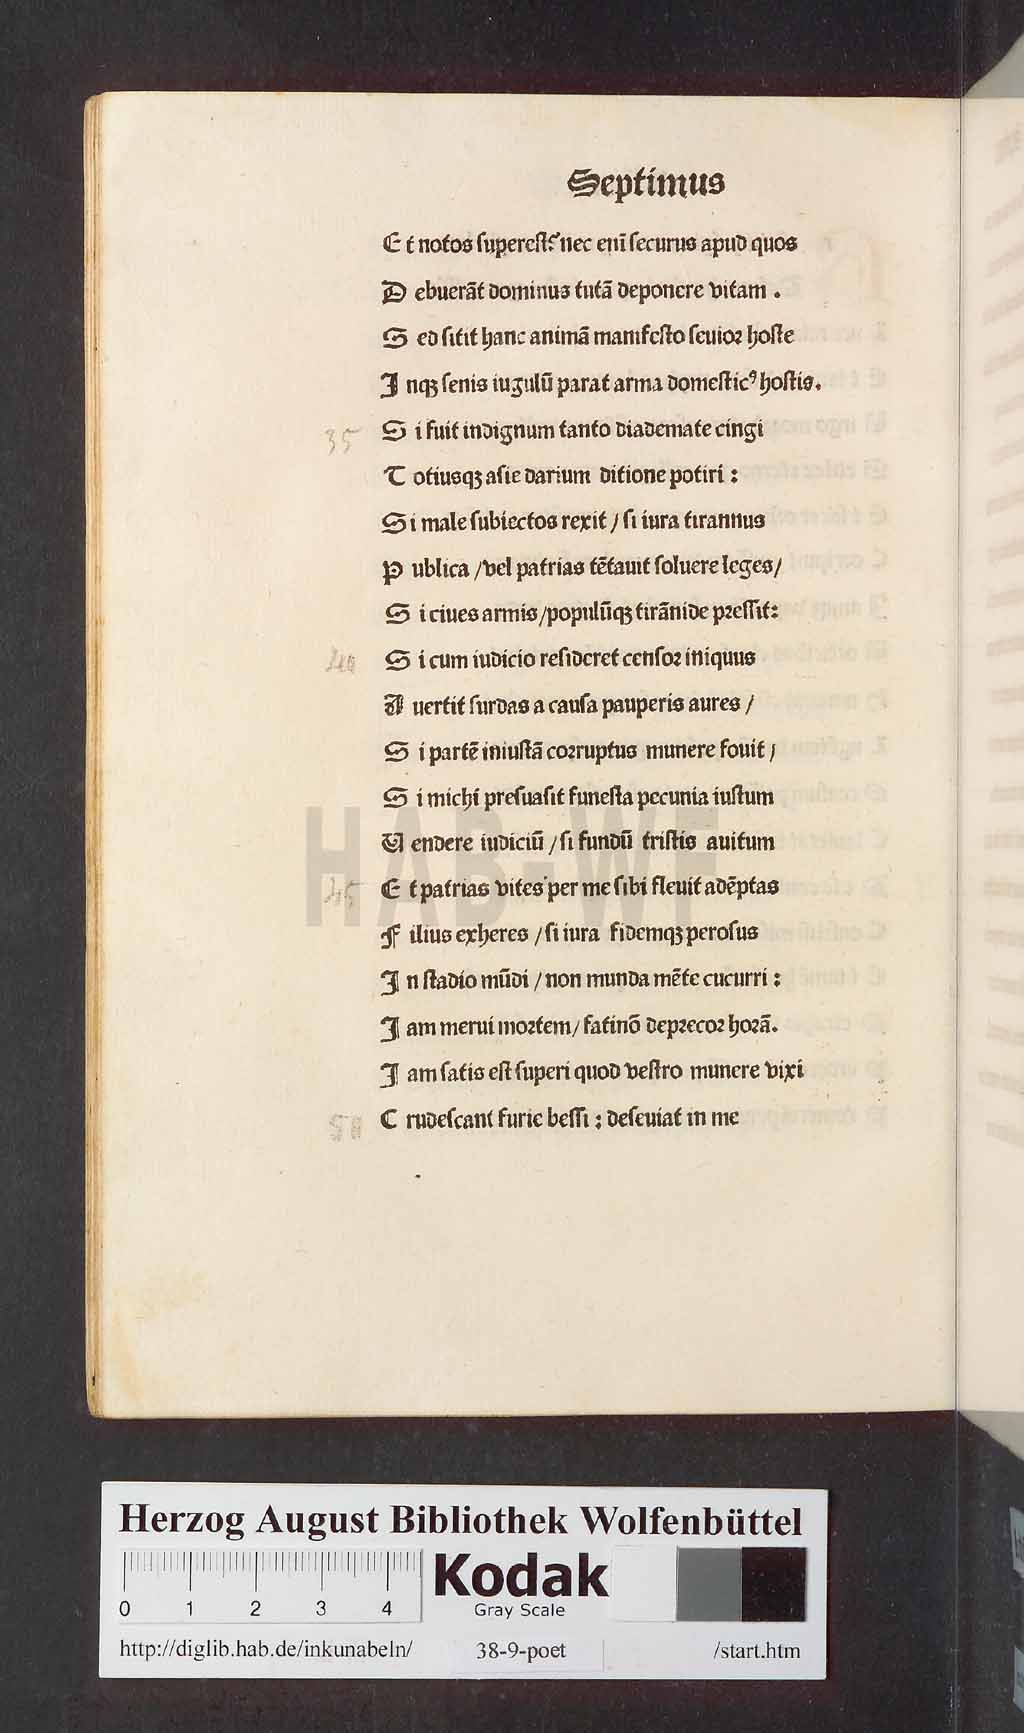 Septimus
Et notos superest: nec eni̅ securus apud quos
Debuera̅t dominus tuta̅ deponere vitam .
Sed sitit hanc anima̅ manifesto seuior hoste
Inqꝫ senis iugulu̅ parat arma domesticꝰ hostis.
35 Si fuit indignum tanto diademate cingi
Totiusqꝫ asie darium ditione potiri :
Si male subiectos rexit / si iura tirannus
Publica / vel patrias te̅tauit soluere leges /
Si ciues armis / populu̅qꝫ tira̅nide pressit:
40 Si cum iudicio resideret censor iniquus
Auertit surdas a causa pauperis aures /
Si parte̅ iniusta̅ corruptus munere fouit /
Si michi presuasit funesta pecunia iustum
Uendere iudiciu̅ / si fundu̅ tristis auitum
45 Et patrias vites per me sibi fleuit ade̅ptas
Filius exheres / si iura fidemqꝫ perosus
In stadio mu̅di / non munda me̅te cucurri :
Iam merui mortem / fatino̅ deprecor hora̅.
Iam satis est superi quod vestro munere vixi
50 Crudescant furie bessi ; deseuiat in me
HAB-WF
Herzog August Bibliothek Wolfenbüttel
0 1 2 3 4
Kodak
Gray Scale
http://diglib.hab.de/inkunabeln/ 38-9-poet /start.htm